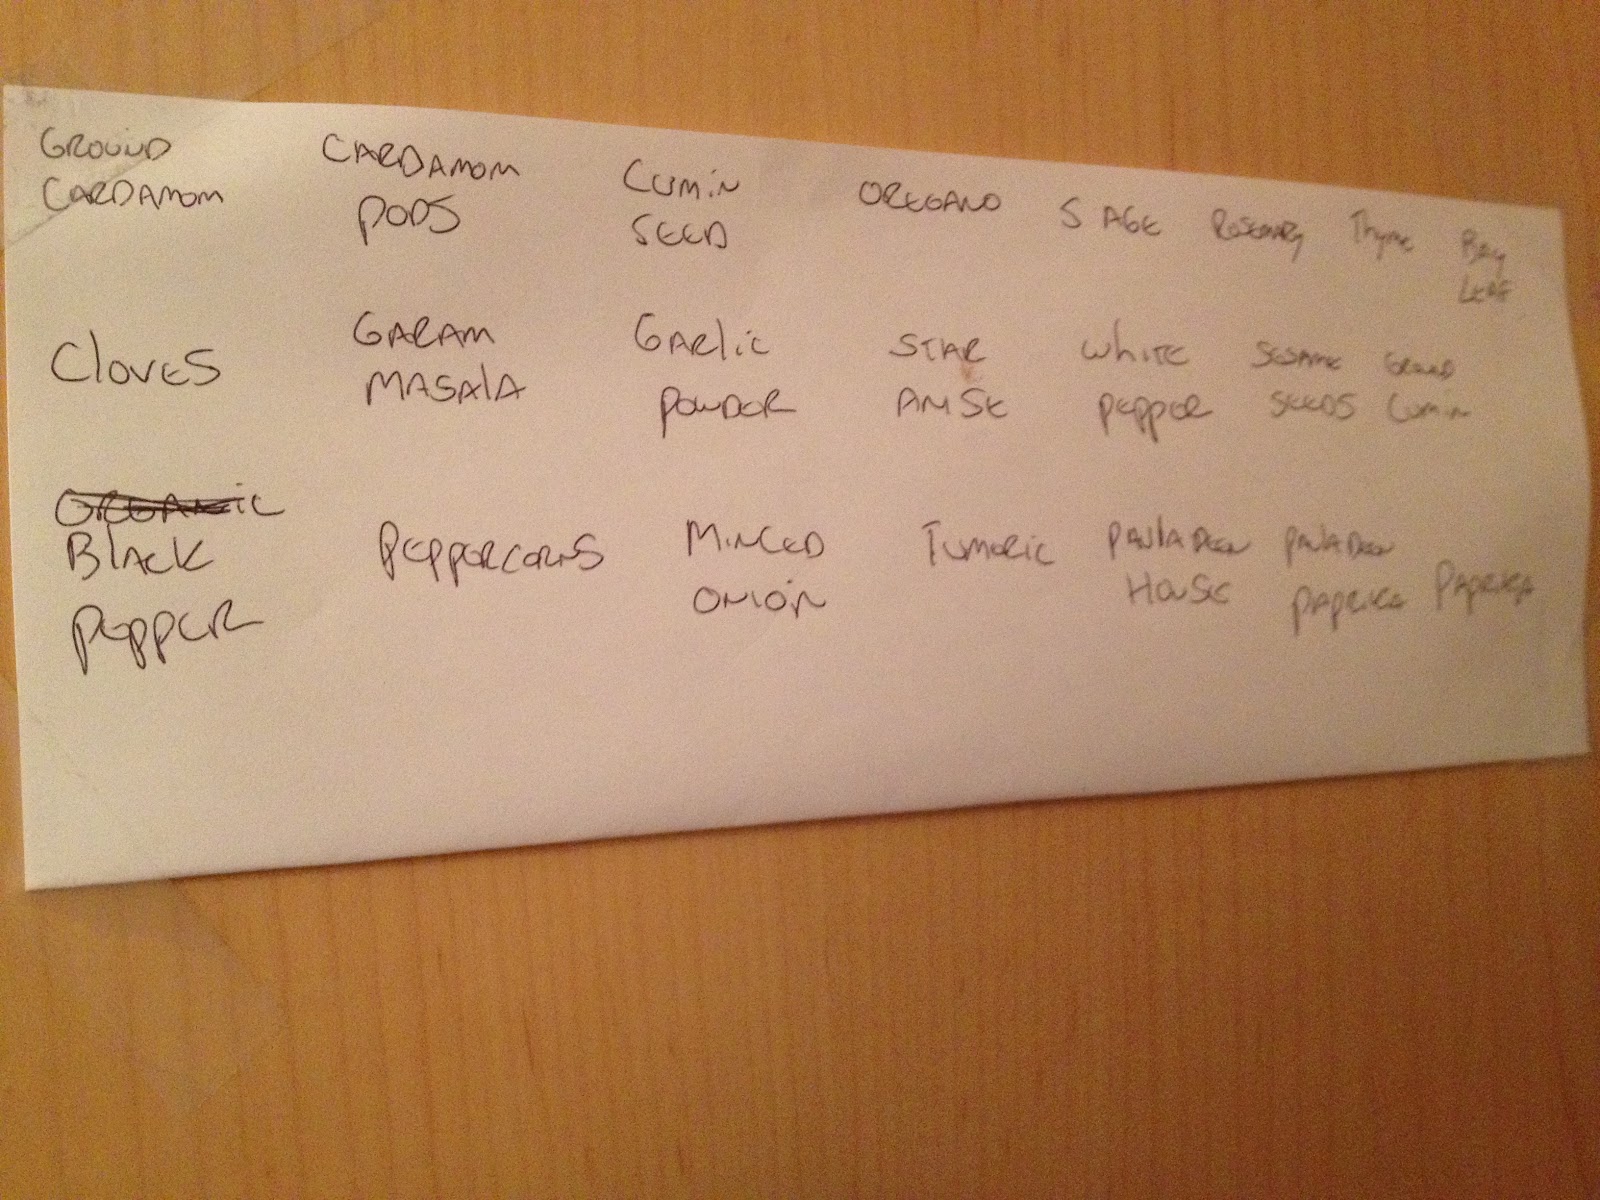 GROUND CARDAMOM PODS CUMIN SEED OREGANO SAGE ROSEMARY Thyme BAY
CARDAMOM LEAF
Cloves GARAM MASAlA GARlic POWDER STAR ANISE WhiTE PEPPER SESAME SEEDS GROUND CUMIN
ORGANIC
BlACK PEPPERCORNS MINCED ONION TUMERIC PAULA DEEN HOUSE PAULA DEEN PAPRIKA PAPRIKA
PEPPER